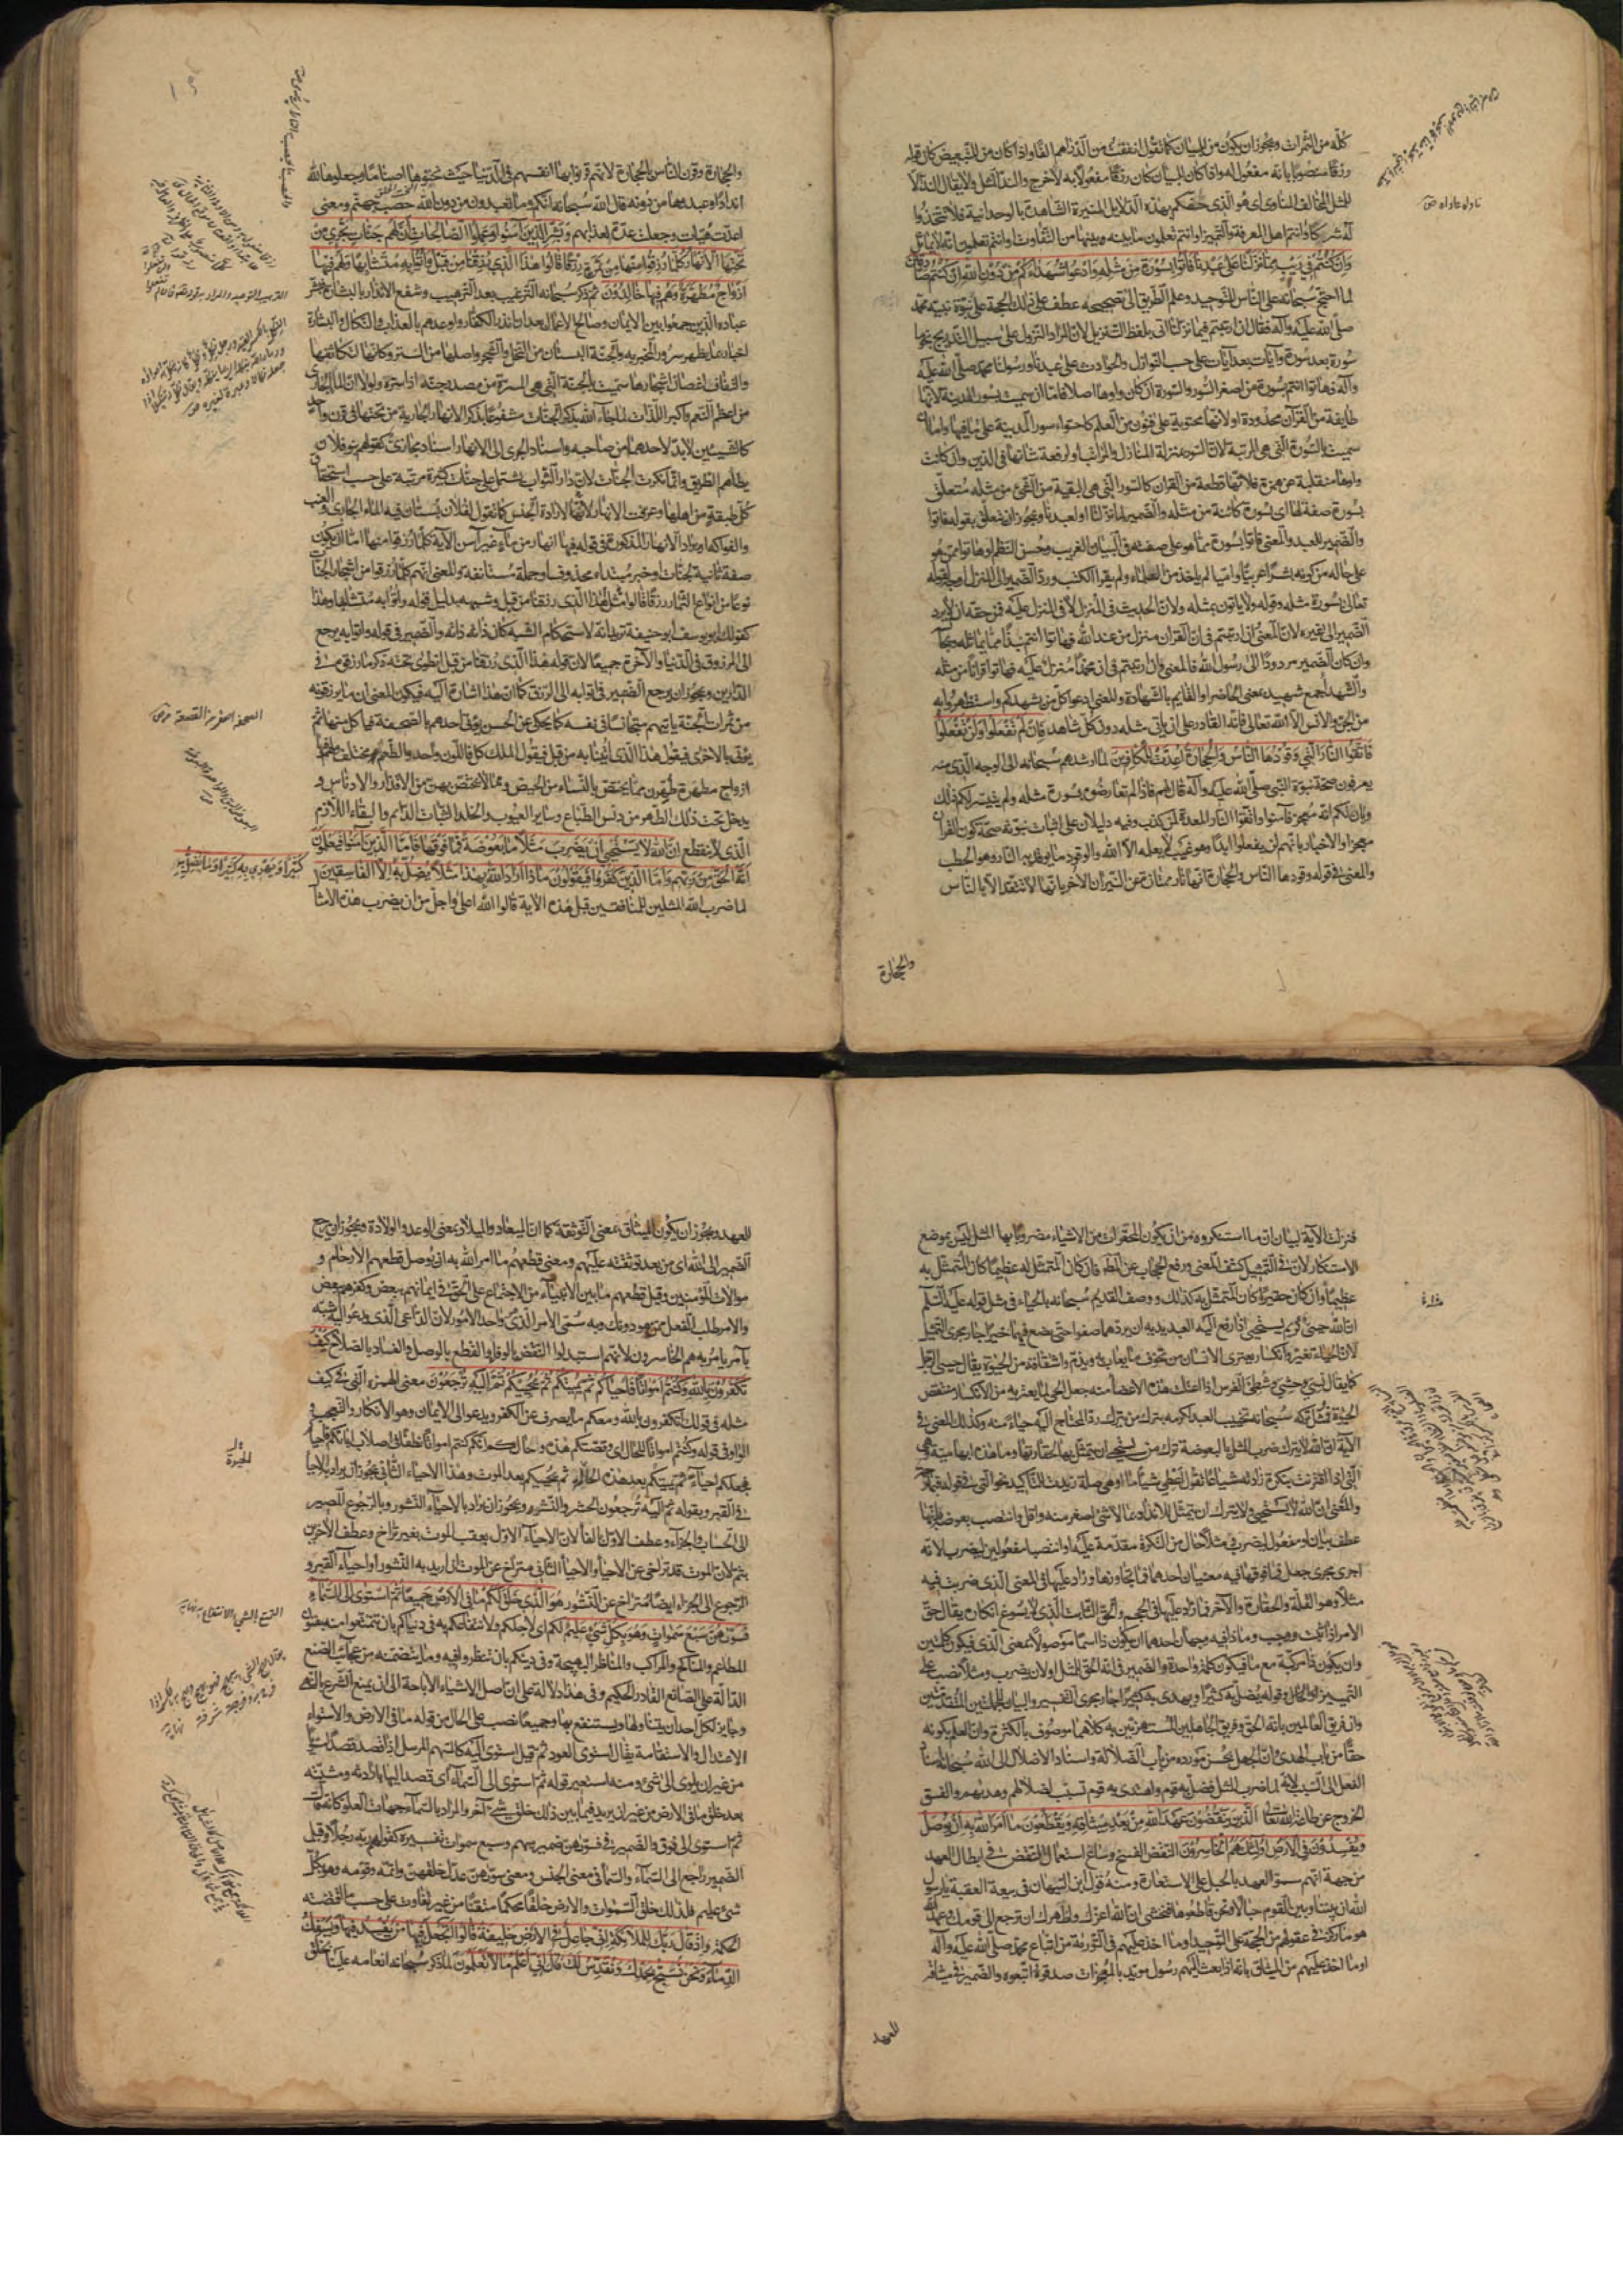 كله من الثمرات ويجوز ان يكون من للبيان كما تقول انفقت من الدراهم الفا واذا كان من للتبعيض كان قوله
رزقا منصوبا بانه مفعول له واذا كان للبيان كان رزقا مفعولا به لاخرج والند المثل ولا يقال الند الا
للمثل المخالف المناوى اى هو الذى خصكم بهذه الدلايل المنيرة الشاهدة بالوحدانية فلا تتخذوا
له شركاء وانتم اهل المعرفة والتمييز او انتم تعلمون ما بينه وبينها من التفاوت او وانتم تعلمون انه لا يماثل
وان كنتم في ريب مما نزلنا على عبدنا فاتوا بسورة من مثله وادعوا شهداءكم من دون الله ان كنتم صادقين
لما احتج سبحانه على الناس للتوحيد وعلم الطريق الى تصحيحه عطف على ذلك الحجة على نبوة نبيه محمد
صلى الله عليه وآله فقال ان ارتبتم فيما نزلنا اتى بلفظ التنزيل لان المراد النزول على سبيل التدريج نجوما
سورة بعد سورة وآيات بعد آيات على حسب النوازل والحوادث على عبدنا ورسولنا محمد صلى الله عليه
وآله فهاتوا انتم بسورة من اصغر السور والسورة ان كان واوها اصلا فاما ان سميت بسور المدينة لانها
طايفة من القرآن محدودة او لانها محتوية على فنون من العلم كاحتواء سور المدينة على ما فيها واما ان
سميت بالسورة التي هي الرتبة لان السور بمنزلة المنازل والمراتب او لرفعة شانها في الدين وان كانت
واوها منقلبة عن همزة فلانها قطعة من القران كالسور التي هي البقية من الشئ من مثله متعلق
بسورة صفة لها اى بسورة كائنة من مثله والضمير لما نزلنا او لعبدنا ويجوز ان يتعلق بقوله فاتوا
والضمير للعبد والمعنى فاتوا بسورة مما هو على صفته في البيان الغريب وحسن النظم او هاتوا ممن هو
على حاله من كونه بشرا عربيا او اميا لم ياخذ من العلماء ولم يقرا الكتب ورد الضمير الى المنزل اوجه لقوله
تعالى بسورة مثله وقوله ولا ياتون بمثله ولان الحديث في المنزل لا في المنزل عليه فمن حقه ان لا يرد
الضمير الى غيره لان المعنى ان ارتبتم في ان القران منزل من عند الله فهاتوا انتم نبذا مما يماثله ويجانسه
وان كان الضمير مردودا الى رسول الله فالمعنى وان ارتبتم في ان محمدا منزل عليه فهاتوا قرانا من مثله
والشهداء جمع شهيد بمعنى الحاضر او القايم بالشهادة والمعنى ادعوا كل من يشهدكم واستظهروا به
من الجن والانس الا الله تعالى فانه القادر على ان ياتي بمثله دون كل شاهد فان لم تفعلوا ولن تفعلوا
فاتقوا النار التي وقودها الناس والحجارة اعدت للكافرين لما ارشدهم سبحانه الى الوجه الذى منه
يعرفون صحة نبوة النبي صلى الله عليه وآله قال لهم فاذا لم تعارضوه بسورة مثله ولم يتيسر لكم ذلك
وبان لكم انه معجز فآمنوا واتقوا النار المعدة لمن كذب وفيه دليلان على اثبات نبوته صحة كون القرآن
معجزا والاخبار بانهم لن يفعلوا ابدا وهو غيب لا يعلمه الا الله والوقود ما يوقد به النار وهو الحطب
والمعنى في قوله وقودها الناس والحجارة انها نار ممتازة عن النيران الاخر بانها لا تتقد الا بالناس
والحجارة
والحجارة وقرن الناس بالحجارة لانهم قرنوا بها انفسهم في الدنيا حيث نحتوها اصناما وجعلوها لله
اندادا وعبدوها من دونه قال الله سبحانه انكم وما تعبدون من دون الله حصب جهنم ومعنى
اعدت هيئت وجعلت عدة لعذابهم وبشر الذين آمنوا وعملوا الصالحات ان لهم جنات تجري من
تحتها الانهار كلما رزقوا منها من ثمرة رزقا قالوا هذا الذي رزقنا من قبل واتوا به متشابها ولهم فيها
ازواج مطهرة وهم فيها خالدون ثم ذكر سبحانه الترغيب بعد الترهيب وشفع الانذار بالبشارة فبشر
عباده الذين جمعوا بين الايمان وصالح الاعمال بعد ان انذر الكفار واوعدهم بالعذاب والنكال والبشارة
اخبار بما يظهر سرور المخبر به والجنة البستان من النخل والشجر واصلها من الستر وكانها لتكاثفها
والتفاف اغصان اشجارها سميت بالجنة التي هي المرة من مصدر جنه اذا ستره ولولا ان الماء الجارى
من اعظم النعم واكبر اللذات لما جاء الله بذكر الجنات مشفوعا بذكر الانهار الجارية من تحتها في قرن واحد
كالشيئين لابد لاحدهما من صاحبه واسناد الجرى الى الانهار اسناد مجازى كقولهم بنو فلان
يطأهم الطريق وانما نكرت الجنات لان دار الثواب تشتمل على جنات كثيرة مرتبة على حسب استحقاق
كل طبقة من اهلها وعرفت الانهار لارادة الجنس كما تقول لفلان بستان فيه الماء الجارى والعنب
والفواكه او يراد الانهار المذكورة في قوله فيها انهار من ماء غير آسن الآية كلما رزقوا منها اما ان يكون
صفة ثانية لجنات او خبر مبتداء محذوف او جملة مستانفة والمعنى انهم كلما رزقوا من اشجار الجنات
نوعا من انواع الثمار رزقا قالوا مثل هذا الذى رزقنا من قبل وشبهه بدليل قوله واتوا به متشابها وهذا
كقولك ابو يوسف ابو حنيفة تريد انه لاستحكام الشبه كان ذاته ذاته والضمير في قوله واتوا به يرجع
الى المرزوق في الدنيا والآخرة جميعا لان قوله هذا الذى رزقنا من قبل انطوى تحته ذكر ما رزقوه في
الدارين ويجوز ان يرجع الضمير في اتوا به الى الرزق كما ان هذا اشارة اليه فيكون المعنى ان ما يرزقونه
من ثمرات الجنة ياتيهم متجانسا في نفسه كما يحكى عن الحسن يؤتى احدهم بالصحيفة فياكل منها ثم
يؤتى بالاخرى فيقول هذا الذى اتينا به من قبل فيقول الملك كل فاللون واحد والطعم مختلف ولهم فيها
ازواج مطهرة طهرن مما يختص بالنساء من الحيض ومما لا يختص بهن من الاقذار والادناس و
يدخل تحت ذلك الطهر من دنس الطباع وساير العيوب والخلد الثبات الدايم والبقاء اللازم
الذى لا ينقطع ان الله لا يستحيى ان يضرب مثلا ما بعوضة فما فوقها فاما الذين آمنوا فيعلمون
انه الحق من ربهم واما الذين كفروا فيقولون ماذا اراد الله بهذا مثلا يضل به كثيرا ويهدي به كثيرا وما يضل به الا الفاسقين
لما ضرب الله المثلين للمنافقين قبل هذه الآية قالوا الله اعلى واجل من ان يضرب هذه الامثال
فنزلت الآية لبيان ان ما استنكروه من ان يكون المحقرات من الاشياء مضروبا بها المثل ليس بموضع
الاستنكار لان في التمثيل كشف المعنى ورفع الحجاب عن المطلوب فان كان المتمثل له عظيما كان المتمثل به
عظيما وان كان حقيرا كان المتمثل به كذلك ووصف القديم سبحانه بالحياء في مثل قوله عليه السلم
ان الله حيي كريم يستحيى اذا رفع اليه العبد يديه ان يردهما صفرا حتى يضع فيهما خيرا جار مجرى التمثيل
لان الحياء تغير وانكسار يعترى الانسان من تخوف ما يعاب به ويذم واشتقاقه من الحيوة يقال حيي الرجل
كما يقال نسى وحشى وشظى الفرس اذا اعتلت هذه الاعضاء منه جعل الحيى لما يعتريه من الانكسار منتقص
الحيوة فمثل تركه سبحانه تخييب العبد لكرمه بترك من يترك رد المحتاج اليه حياء منه وكذلك المعنى في
الآية ان الله لا يترك ضرب المثل بالبعوضة ترك من يستحيى ان يتمثل بها لحقارتها وما هذه ابهامية وهي
التي اذا اقترنت بنكرة زادته شياعا تقول اعطني شيئا ما او هي صلة زيدت للتاكيد نحو التي في قوله فبما رحمة
والمعنى ان الله لا يستحيى ولا يترك ان يتمثل للانداد بما لا شئ اصغر منه واقل وانتصب بعوضة بانها
عطف بيان او مفعول ليضرب ومثلا حال من النكرة مقدمة عليه او انتصبا مفعولين ليضرب لانه
اجرى مجرى جعل فما فوقها فيه معنيان احدهما فما تجاوزها وزاد عليها في المعنى الذى ضربت فيه
مثلا وهو القلة والحقارة والآخر فما زاد عليها في الحجم والحق الثابت الذى لا يسوغ انكاره يقال حق
الامر اذا ثبت ووجب وماذا فيه وجهان احدهما ان يكون ذا اسما موصولا بمعنى الذى فيكون كلمتين
وان يكون ذا مركبة مع ما فيكون كلمة واحدة والضمير في انه الحق للمثل او لان يضرب ومثلا نصب على
التمييز او الحال وقوله يضل به كثيرا ويهدى به كثيرا جار مجرى التفسير والبيان للجملتين المتقدمتين
وان فريق العالمين بانه الحق وفريق الجاهلين المستهزئين به كلاهما موصوف بالكثرة وان العلم بكونه
حقا من باب الهدى وان الجهل بحسن مورده من باب الضلالة واسناد الاضلال الى الله سبحانه اسناد
الفعل الى السبب لانه لما ضرب المثل فضل به قوم واهتدى به قوم تسبب لضلالهم وهديهم والفسق
الخروج عن طاعة الله تعالى الذين ينقضون عهد الله من بعد ميثاقه ويقطعون ما امر الله به ان يوصل
ويفسدون في الارض اولئك هم الخاسرون النقض الفسخ وساغ استعمال النقض في ابطال العهد
من جهة انهم سموا العهد بالحبل على الاستعارة ومنه قول ابن التيهان في بيعة العقبة يا رسول
الله ان بيننا وبين القوم حبالا ونحن قاطعوها فنخشى ان الله اعزك واظهرك ان ترجع الى قومك وعهد الله
هو ما ركز في عقولهم من الحجة على التوحيد او ما اخذ عليهم في التورية من اتباع محمد صلى الله عليه وآله
او ما اخذ عليهم من الميثاق بانه اذا بعث اليهم رسول مويد بالمعجزات صدقوه واتبعوه والضمير في ميثاقه
للعهد
للعهد ويجوز ان يكون الميثاق بمعنى التوثقة كما ان الميعاد والميلاد بمعنى الوعد والولادة ويجوز ان يرجع
الضمير الى الله اى من بعد توثقته عليهم ومعنى قطعهم ما امر الله به ان يوصل قطعهم الارحام و
موالات المؤمنين وقيل قطعهم ما بين الانبياء من الاجتماع على الحق في ايمانهم ببعض وكفرهم ببعض
والامر طلب الفعل ممن هو دونك وبه سمى الامر الذى هو واحد الامور لان الداعى الذى يدعو اليه شبه
بآمر يامر به هم الخاسرون لانهم استبدلوا النقض بالوفاء والقطع بالوصل والفساد بالصلاح كيف
تكفرون بالله وكنتم امواتا فاحياكم ثم يميتكم ثم يحييكم ثم اليه ترجعون معنى الهمزة التي في كيف
مثله في قولك اتكفرون بالله ومعكم ما يصرف عن الكفر ويدعو الى الايمان وهو الانكار والتعجب
الواو في قوله وكنتم امواتا للحال اى وقصتكم هذه وحالكم انكم كنتم امواتا نطفا في اصلاب آبائكم فاحياكم
فجعلكم احياء ثم يميتكم بعد هذه الحال ثم يحييكم بعد الموت وهذا الاحياء الثاني يجوز ان يراد به الاحياء
في القبر وبقوله ثم اليه ترجعون الحشر والنشور ويجوز ان يراد بالاحياء النشور وبالرجوع المصير
الى الحساب والجزاء وعطف الاول بالفاء لان الاحياء الاول يعقب الموت بغير تراخ وعطف الآخرين
بثم لان الموت قد تراخى عن الاحياء والاحياء الثاني متراخ عن الموت ان اريد به النشور او احياء القبر و
الرجوع الى الجزاء ايضا متراخ عن النشور هو الذي خلق لكم ما في الارض جميعا ثم استوى الى السماء
فسويهن سبع سموات وهو بكل شئ عليم لكم اى لاجلكم ولانتفاعكم به في دنياكم بان تتمتعوا منه بفنون
المطاعم والمناكح والمراكب والمناظر البهيجة وفي دينكم بان تنظروا فيه وما يتضمنه من عجائب الصنع
الدالة على الصانع القادر الحكيم وفي هذا دلالة على ان اصل الاشياء الاباحة الى ان يمنع الشرع بالنهى
وجايز لكل احد ان يتناولها ويستنفع بها وجميعا نصب على الحال من قوله ما في الارض والاستواء
الاعتدال والاستقامة يقال استوى العود ثم قيل استوى اليه كالسهم المرسل اذا قصده قصدا مستويا
من غير ان يلوى على شئ ومنه استعير قوله ثم استوى الى السماء اى قصد اليها بارادته ومشيته
بعد خلق ما في الارض من غير ان يريد فيما بين ذلك خلق شئ آخر والمراد بالسماء جهات العلو كانه قال
ثم استوى الى فوق والضمير في فسويهن ضمير مبهم وسبع سموات تفسيره كقولهم ربه رجلا وقيل
الضمير راجع الى السماء والسماء في معنى الجنس ومعنى سويهن عدل خلقهن واتمه وقومه وهو بكل
شئ عليم فلذلك خلق السموات والارض خلقا محكما متقنا من غير تفاوت على حسب ما اقتضته
الحكمة واذ قال ربك للملائكة اني جاعل في الارض خليفة قالوا اتجعل فيها من يفسد فيها ويسفك
الدماء ونحن نسبح بحمدك ونقدس لك قال اني اعلم ما لا تعلمون لما ذكر سبحانه انعامه علينا بخلق